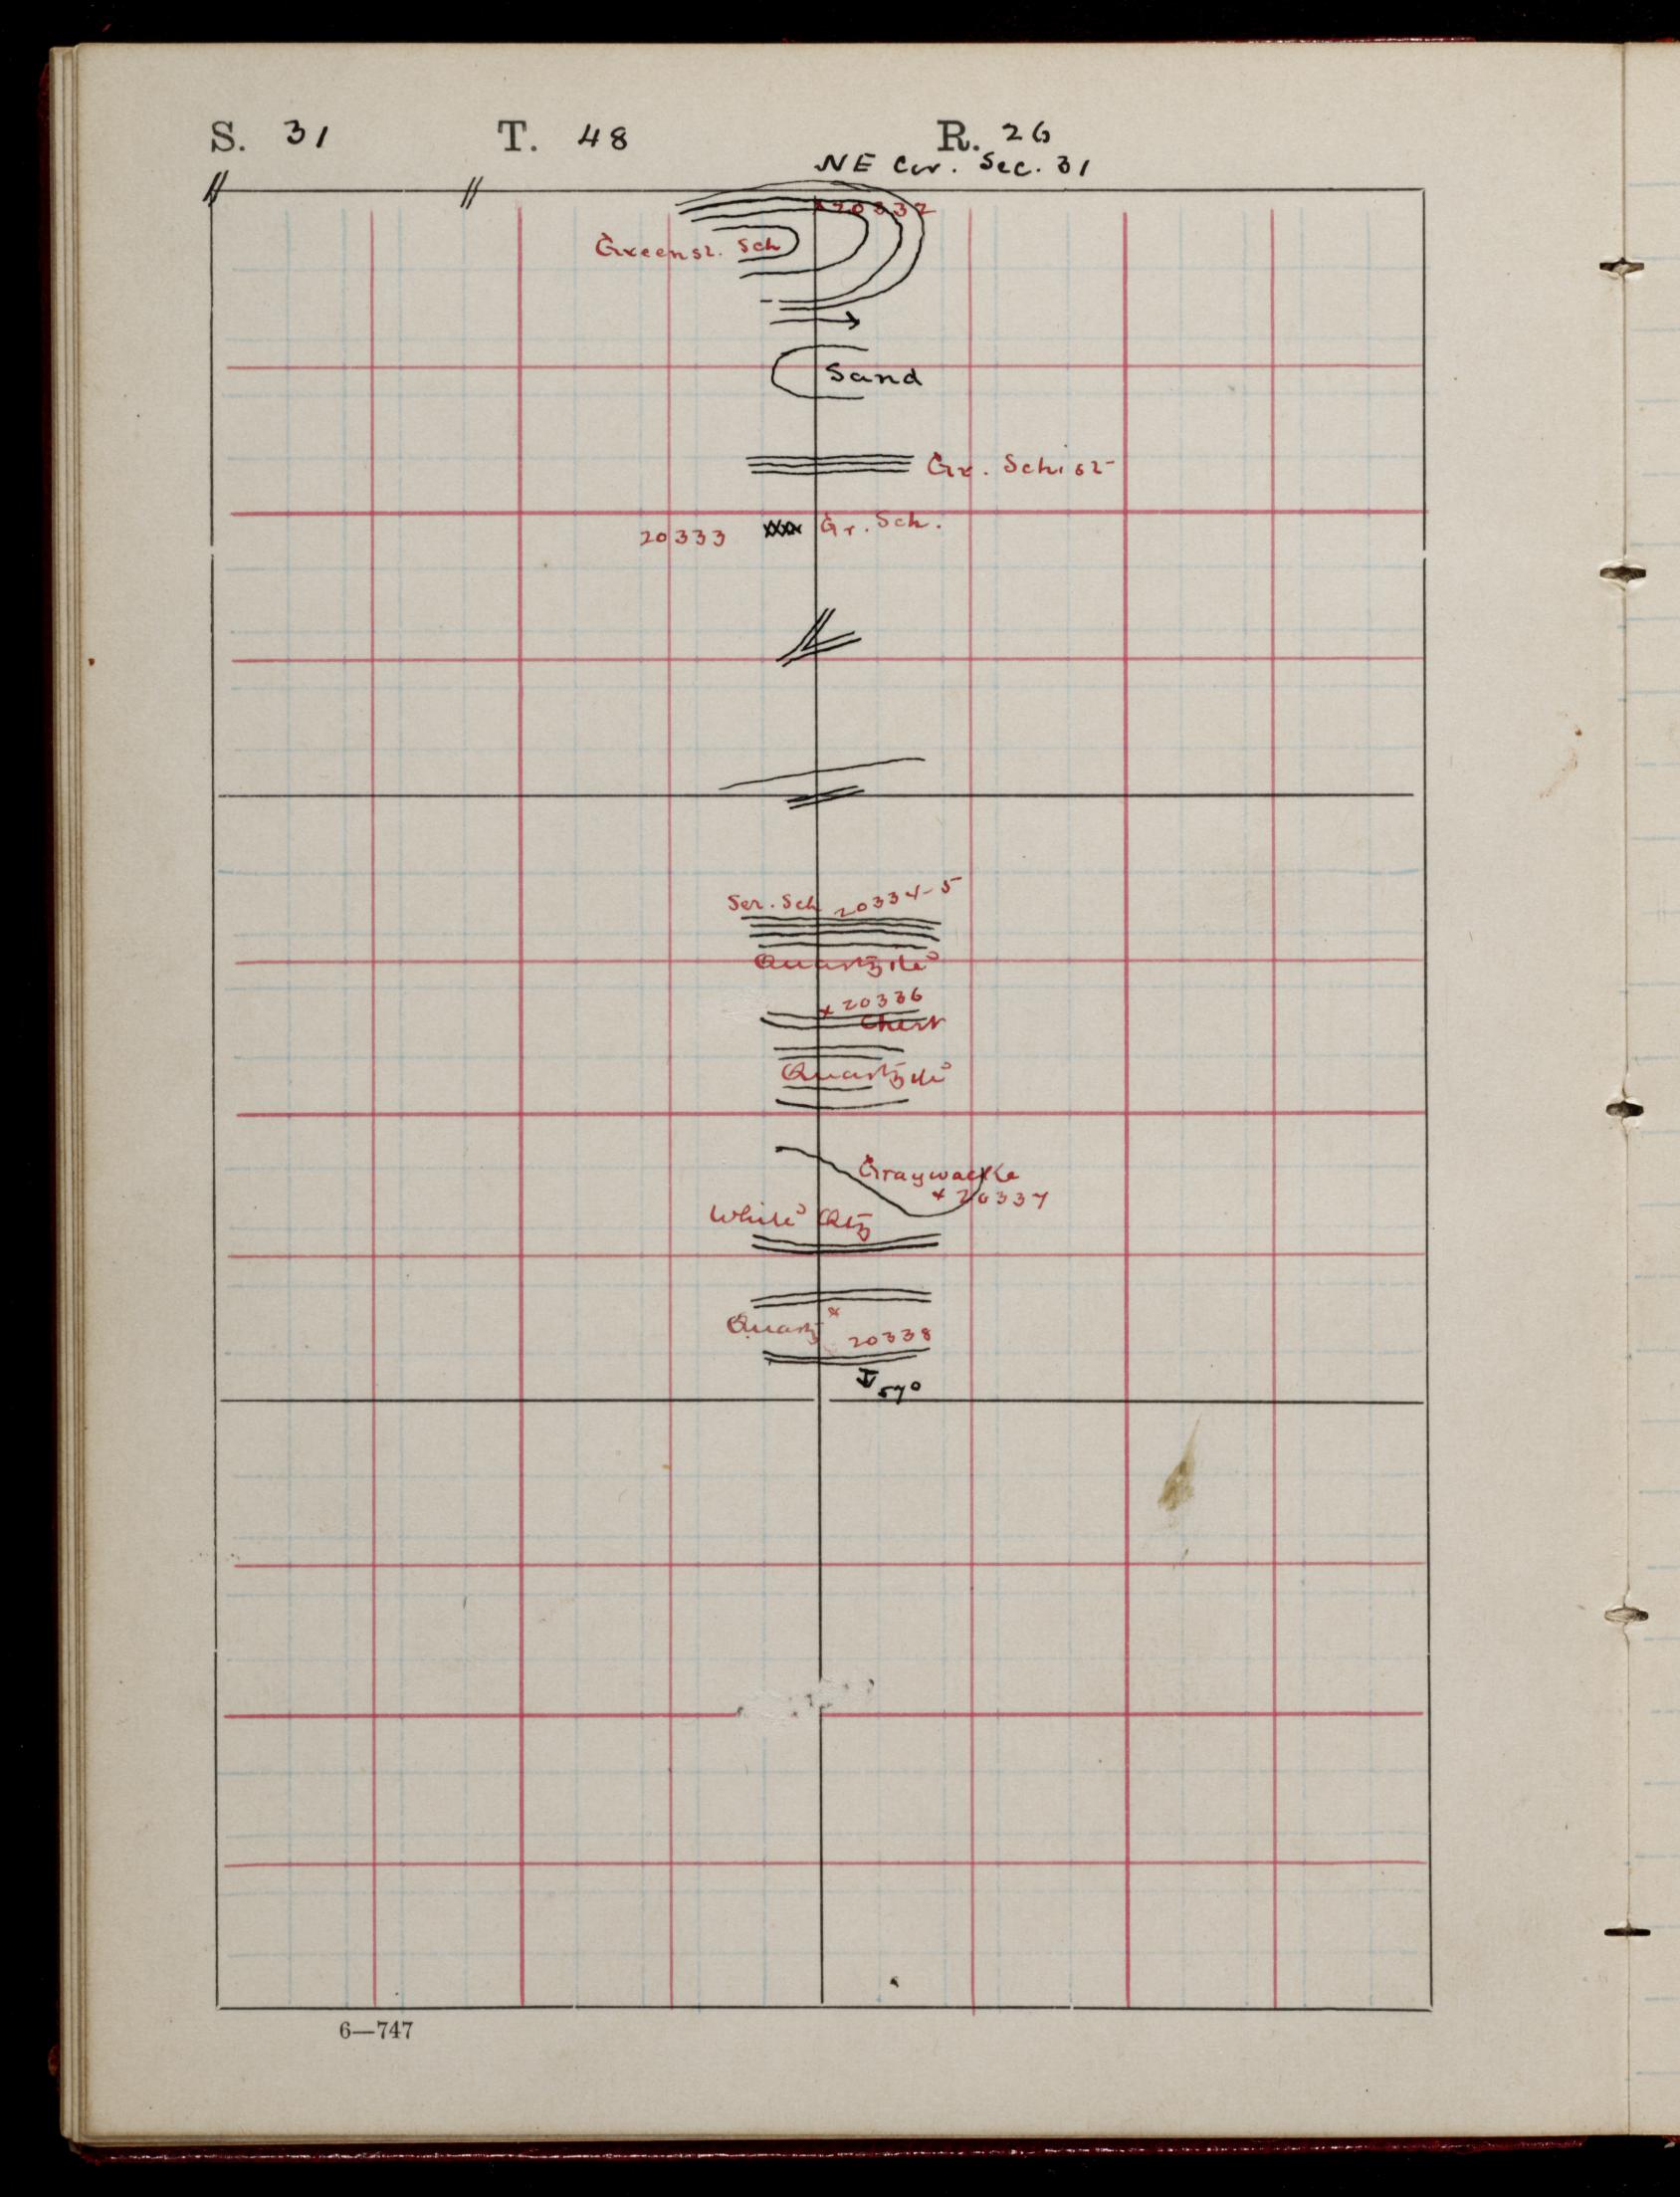 S. 31 T. 48 R. 26
NE Cor. Sec. 31
x 20332
Greenst. Sch
Sand
Gr. Schist
20333 Gr. Sch.
Ser. Sch 20334-5
Quartzite
x 20336
Chert
Quartzite
Graywacke
x 20337
White Qtz
Quartz x
20338
57°
6—747